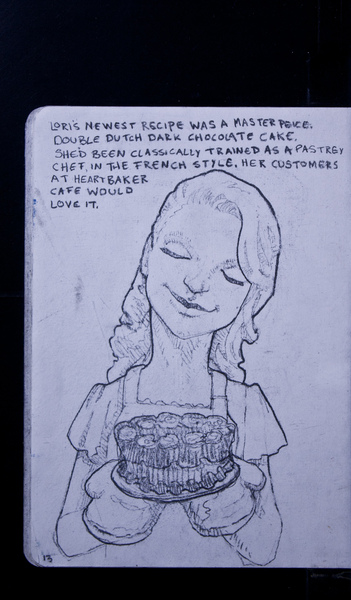 LORI'S NEWEST RECIPE WAS A MASTER PEICE.
DOUBLE DUTCH DARK CHOCOLATE CAKE.
SHE'D BEEN CLASSICALLY TRAINED AS A PASTREY
CHEF, IN THE FRENCH STYLE. HER CUSTOMERS
AT HEARTBAKER
CAFE WOULD
LOVE IT.
13